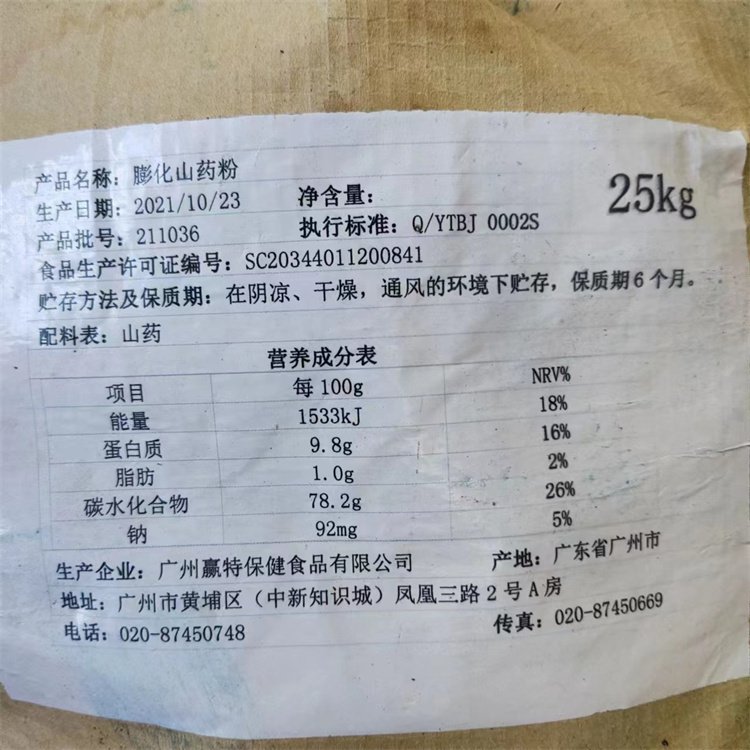 产品名称：膨化山药粉
生产日期：2021/10/23 净含量： 25kg
产品批号：211036 执行标准：Q/YTBJ 0002S
食品生产许可证编号：SC20344011200841
贮存方法及保质期：在阴凉、干燥，通风的环境下贮存，保质期6个月。
配料表：山药
营养成分表
项目 每100g NRV%
能量 1533kJ 18%
蛋白质 9.8g 16%
脂肪 1.0g 2%
碳水化合物 78.2g 26%
钠 92mg 5%
生产企业：广州赢特保健食品有限公司 产地：广东省广州市
地址：广州市黄埔区（中新知识城）凤凰三路2号A房
电话：020-87450748 传真：020-87450669